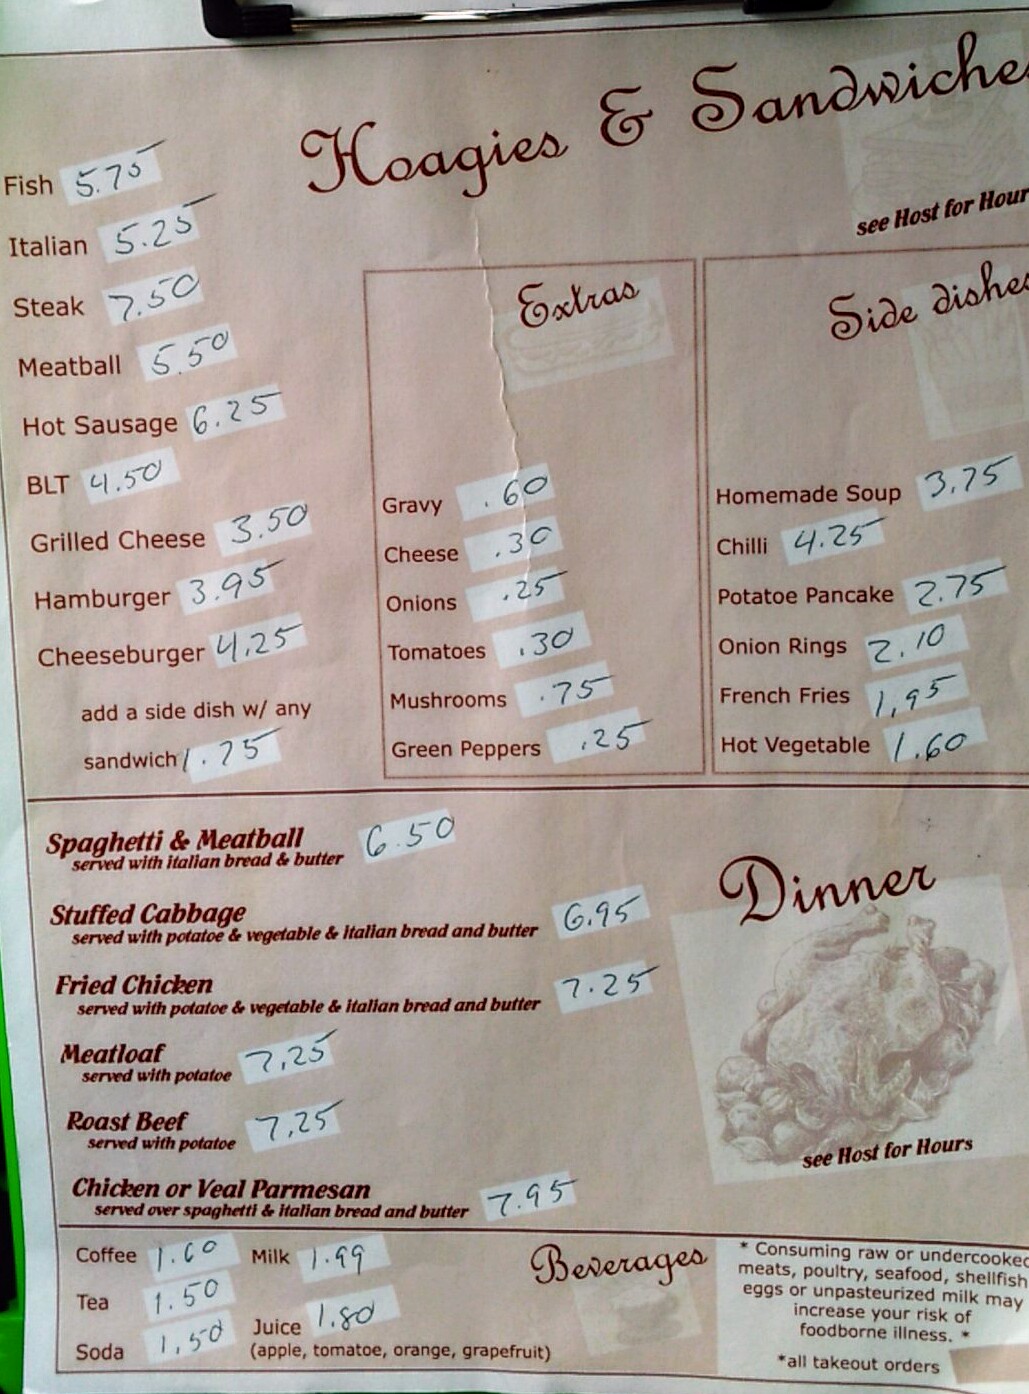 Hoagies & Sandwiches
see Host for Hour
Fish 5.75
Italian 5.25
Steak 7.50
Meatball 5.50
Hot Sausage 6.25
BLT 4.50
Grilled Cheese 3.50
Hamburger 3.95
Cheeseburger 4.25
add a side dish w/ any
sandwich 1.75
Extras
Gravy .60
Cheese .30
Onions .25
Tomatoes .30
Mushrooms .75
Green Peppers .25
Side dishes
Homemade Soup 3.75
Chilli 4.25
Potatoe Pancake 2.75
Onion Rings 2.10
French Fries 1.95
Hot Vegetable 1.60
Dinner
Spaghetti & Meatball 6.50
served with italian bread & butter
Stuffed Cabbage 6.95
served with potatoe & vegetable & italian bread and butter
Fried Chicken 7.25
served with potatoe & vegetable & italian bread and butter
Meatloaf 7.25
served with potatoe
Roast Beef 7.25
served with potatoe
Chicken or Veal Parmesan 7.95
served over spaghetti & italian bread and butter
see Host for Hours
Beverages
Coffee 1.60
Tea 1.50
Soda 1.50
Milk 1.99
Juice 1.80
(apple, tomatoe, orange, grapefruit)
* Consuming raw or undercooked
meats, poultry, seafood, shellfish
eggs or unpasteurized milk may
increase your risk of
foodborne illness. *
*all takeout orders